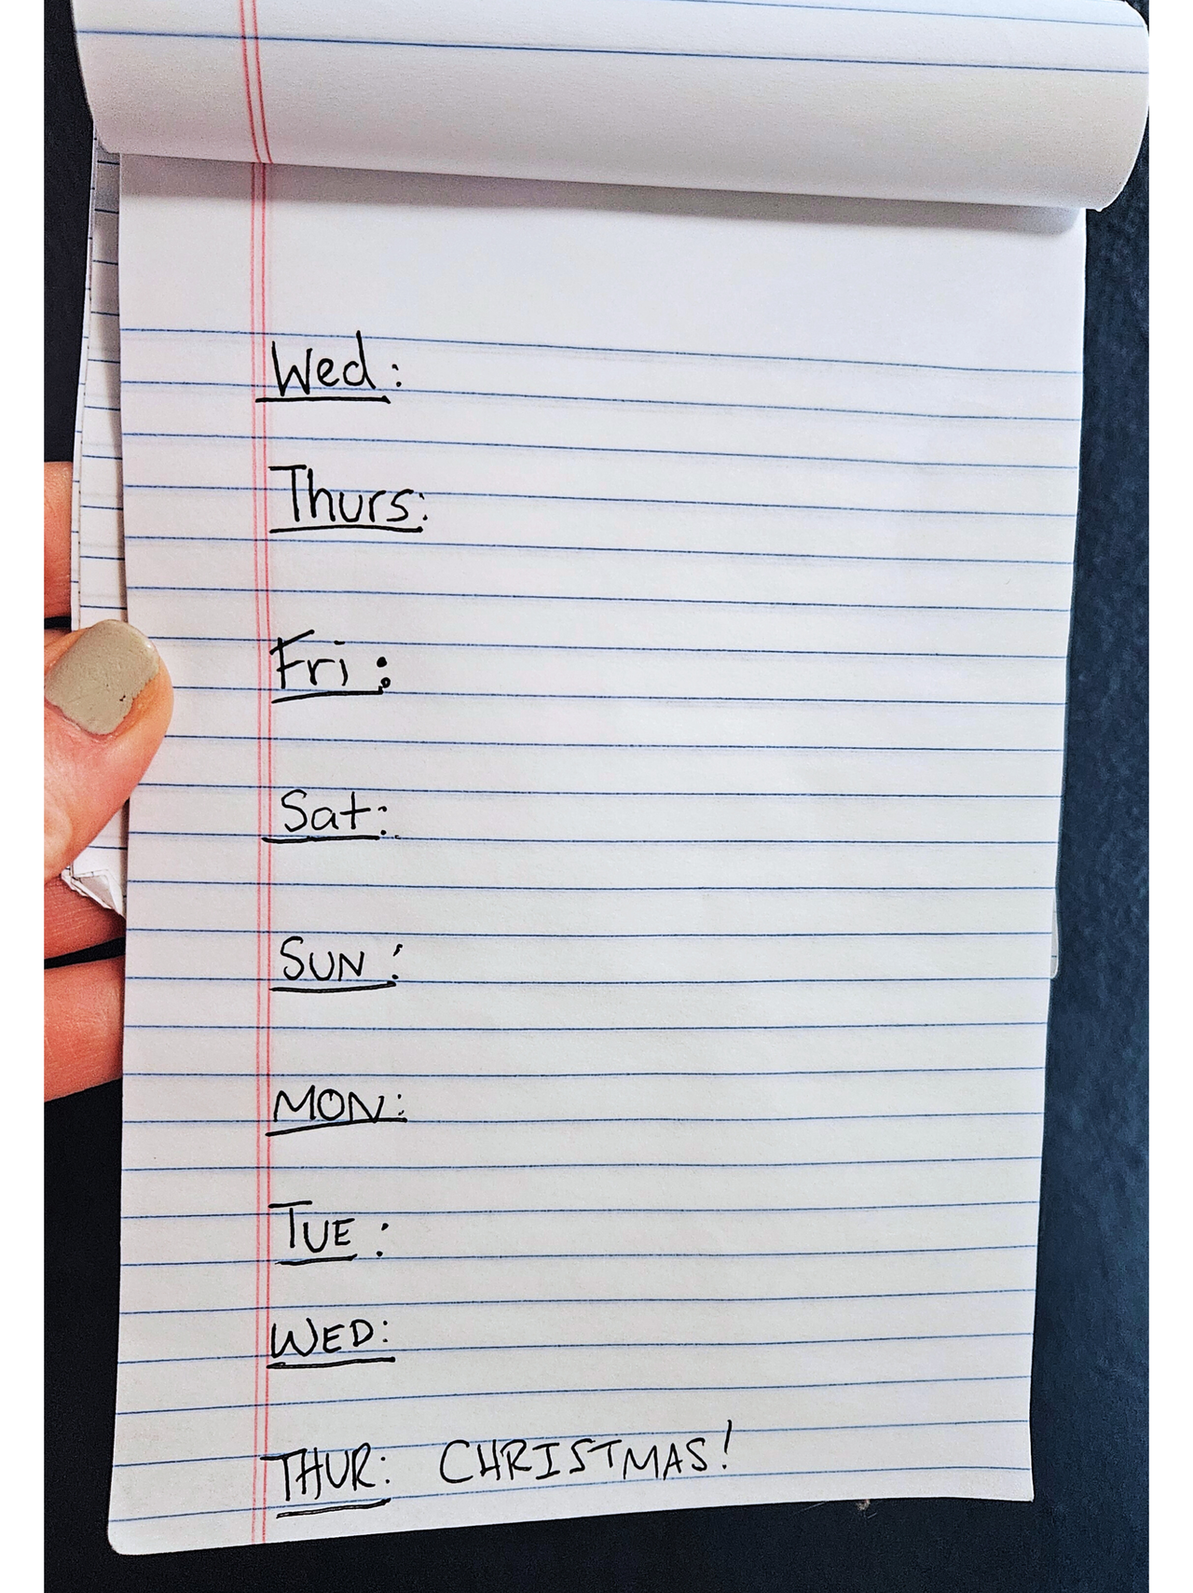 Wed:
Thurs:
Fri:
Sat:
SUN:
MON:
TUE:
WED:
THUR: CHRISTMAS!